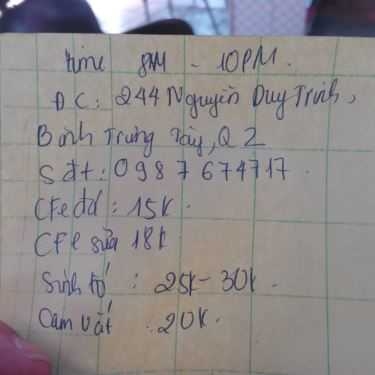 time 8AM - 10PM.
ĐC: 244 Nguyễn Duy Trinh,
Bình Trưng Tây, Q2
Sđt: 0987674717.
CFe đd: 15k.
CFe sữa 18k
Sinh tố : 25k - 30k.
Cam vắt : 20k.